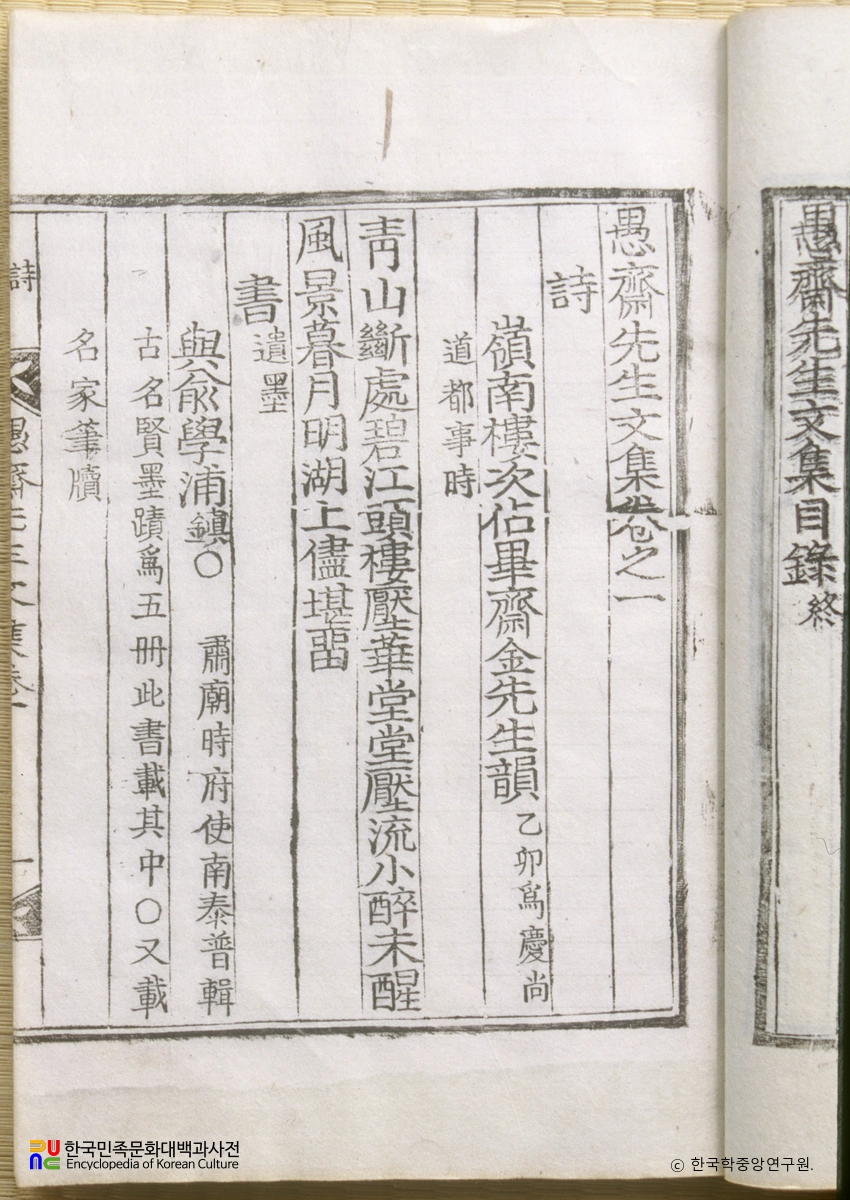 愚齋先生文集目錄終
愚齋先生文集卷之一
詩
嶺南樓次佔畢齋金先生韻 乙卯爲慶尚
道都事時
靑山斷處碧江頭樓壓華堂堂壓流小醉未醒
風景暮月明湖上儘堪畱
書 遺墨
與兪學浦鎭○ 肅廟時府使南泰普輯
古名賢墨蹟爲五冊此書載其中○又載
名家筆牘
詩
愚齋先生文集卷一
一
한국민족문화대백과사전
Encyclopedia of Korean Culture
ⓒ 한국학중앙연구원.